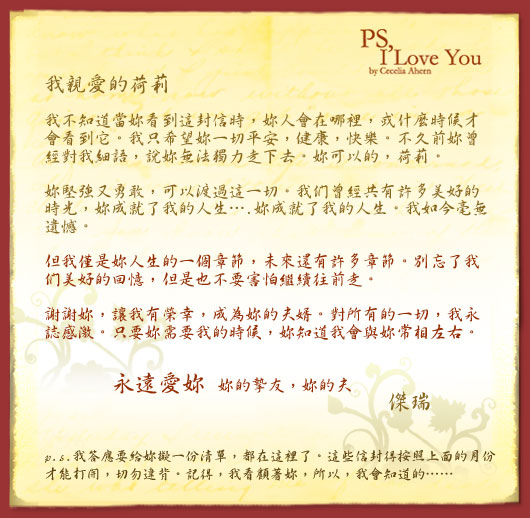 PS,
I Love You
by Cecelia Ahern
我親愛的荷莉
我不知道當妳看到這封信時，妳人會在哪裡，或什麼時候才
會看到它。我只希望妳一切平安，健康，快樂。不久前妳曾
經對我細語，說妳無法獨力走下去。妳可以的，荷莉。
妳堅強又勇敢，可以渡過這一切。我們曾經共有許多美好的
時光，妳成就了我的人生….妳成就了我的人生。我如今毫無
遺憾。
但我僅是妳人生的一個章節，未來還有許多章節。別忘了我
们美好的回憶，但是也不要害怕繼續往前走。
謝謝妳，讓我有榮幸，成為妳的夫婿。對所有的一切，我永
誌感激。只要妳需要我的時候，妳知道我會與妳常相左右。
永遠愛妳 妳的摯友，妳的夫
傑瑞
p.s.我答應要給妳擬一份清單，都在這裡了。這些信封得按照上面的月份
才能打開，切勿違背。記得，我看顧著妳，所以，我會知道的……